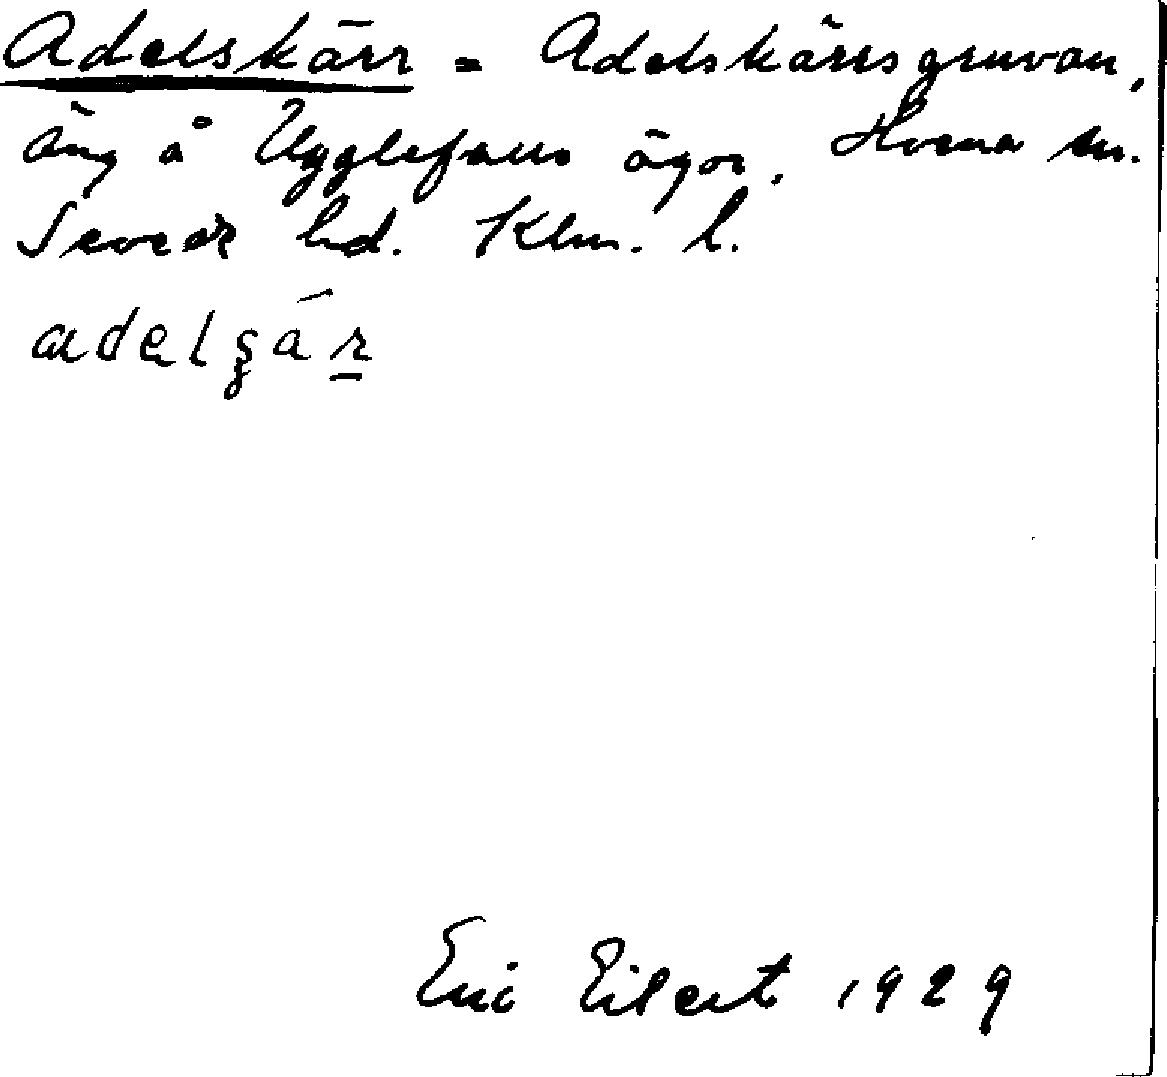 Adelskärr = Adelskärrsgruvan,
äng å Ugglefalls ägor. Hvena sn.
Sevede hd. Klm. l.
adelʂár
Eric Eilert 1929